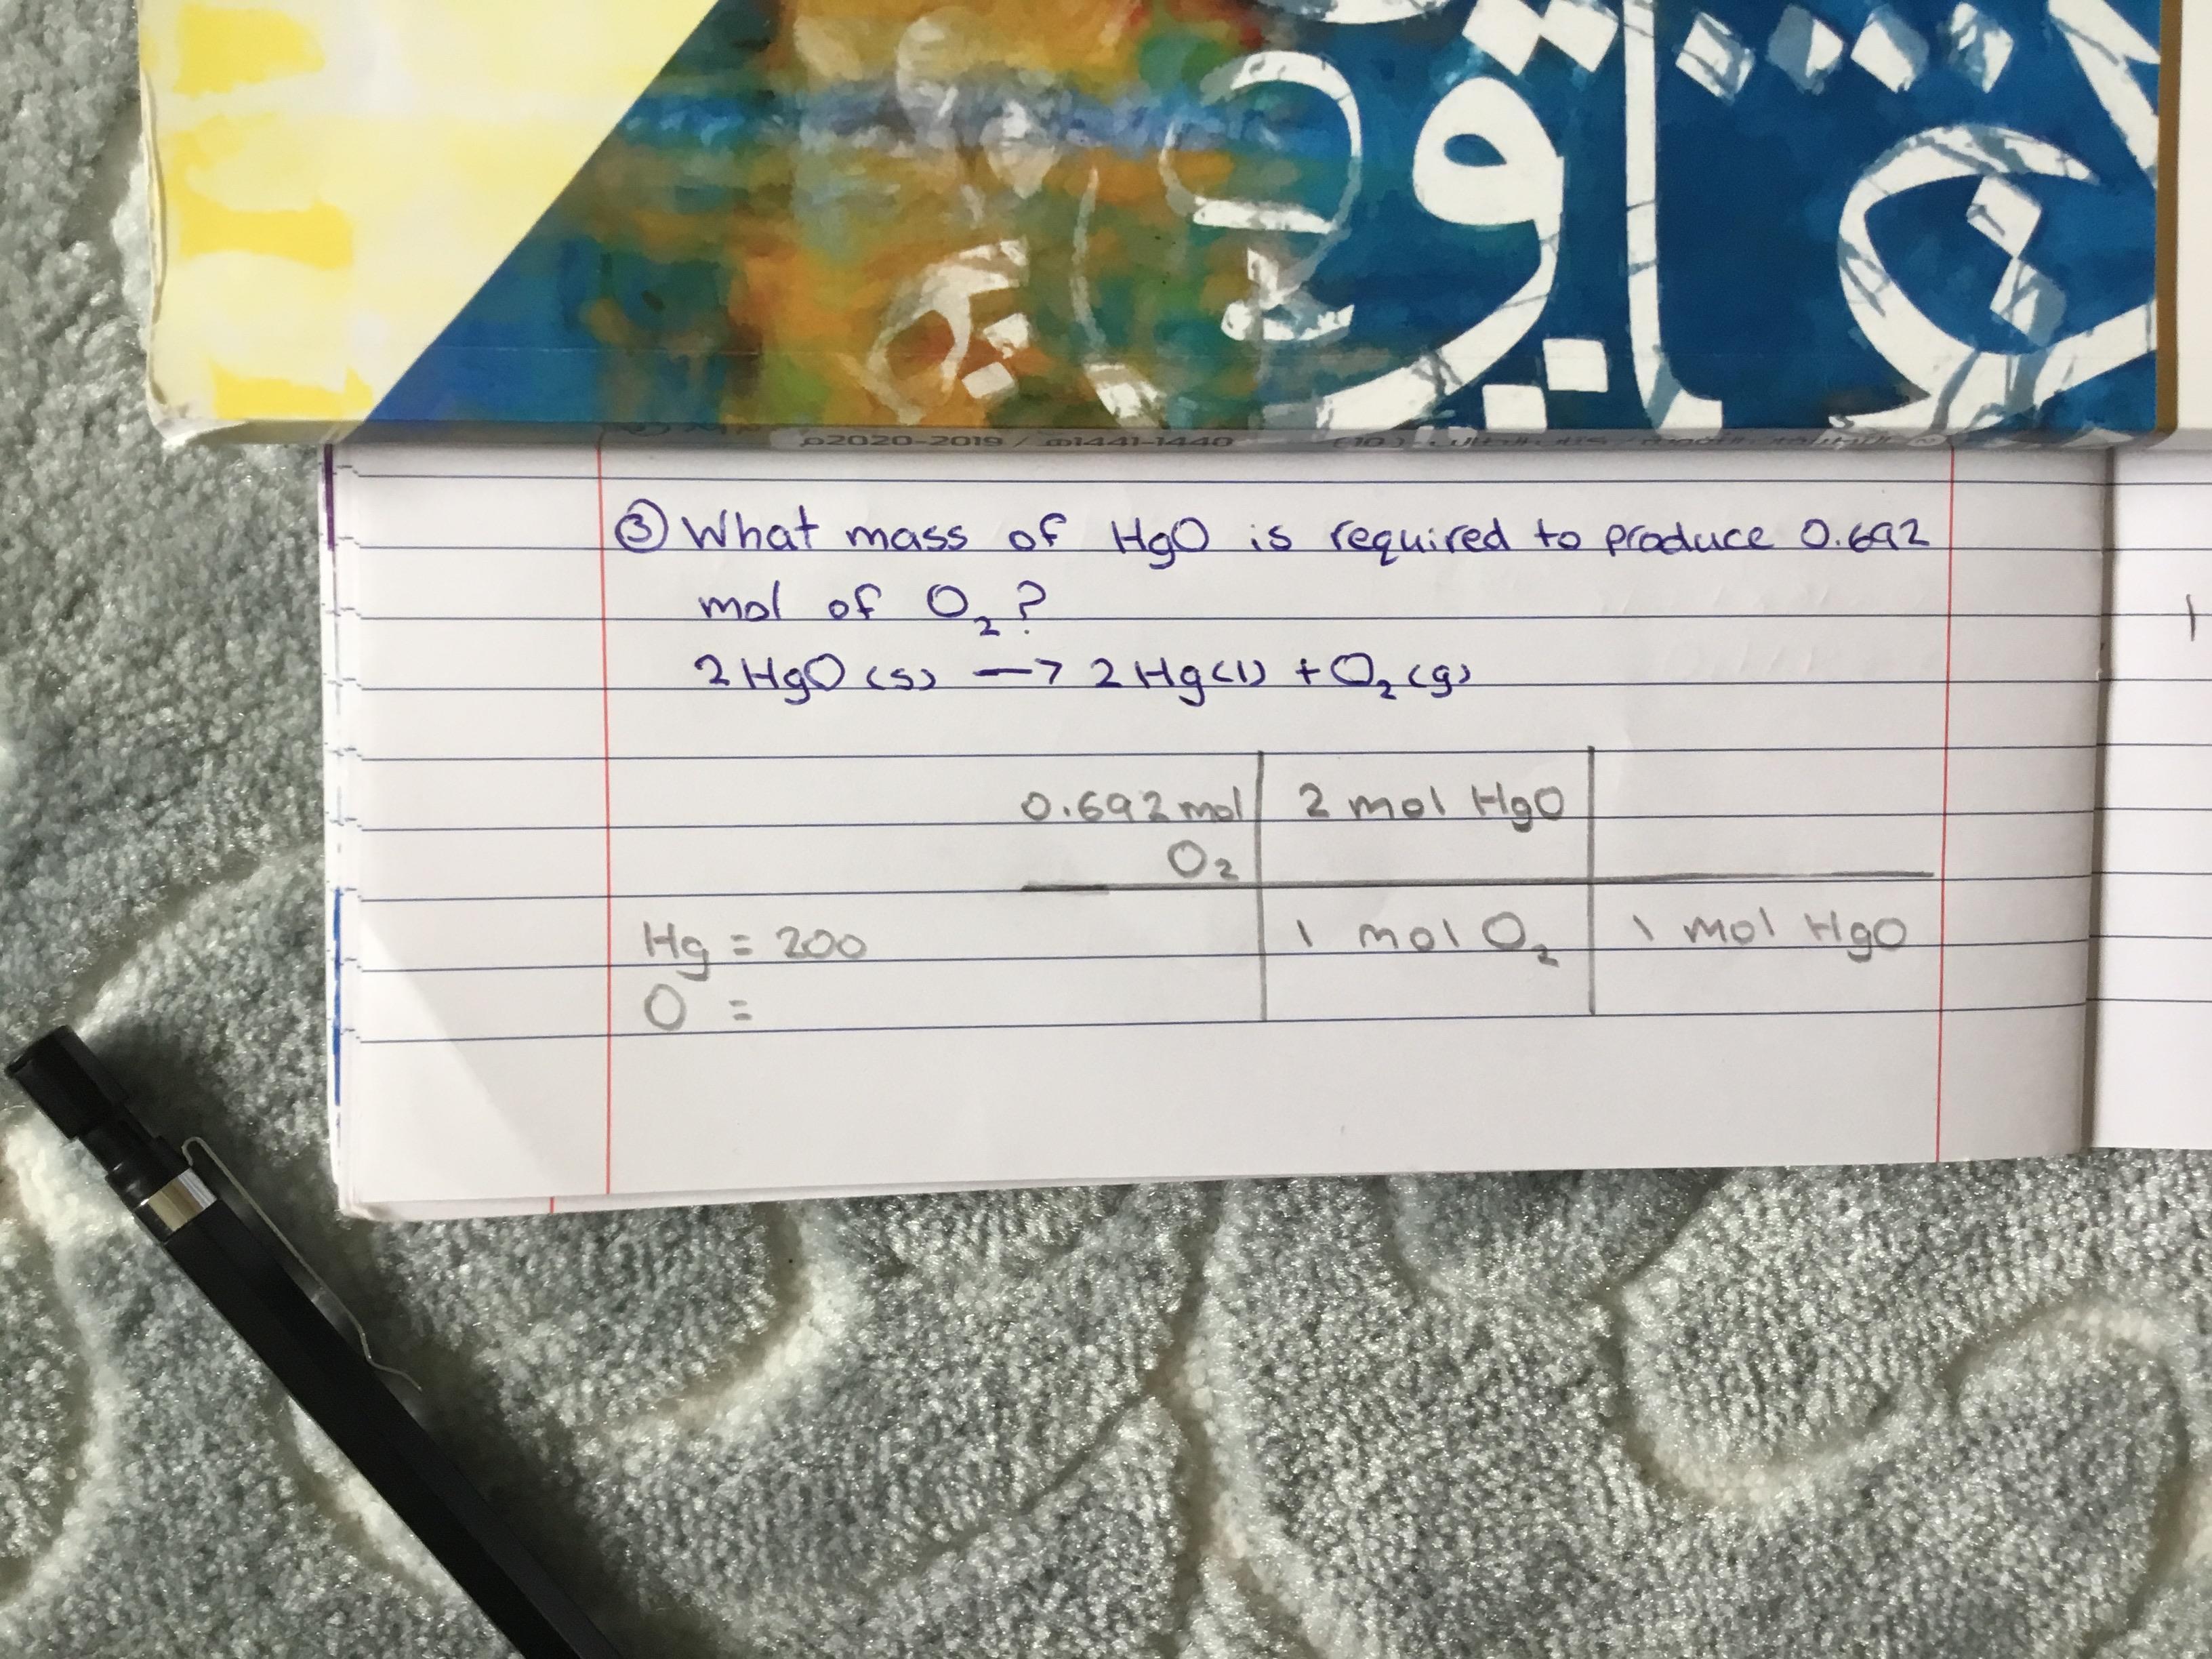 2020-2019م / 1441-1440هـ
③ What mass of HgO is required to produce 0.692
mol of O₂?
2HgO(s) → 2Hg(l) + O₂(g)
0.692 mol 2 mol HgO
O₂
Hg = 200 1 mol O₂ 1 mol HgO
O =